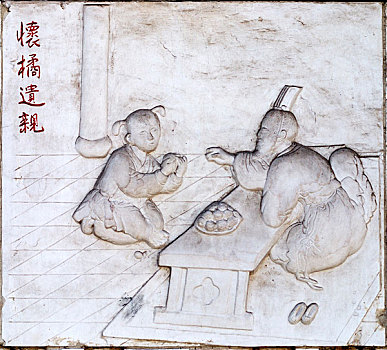 懷橘遺親